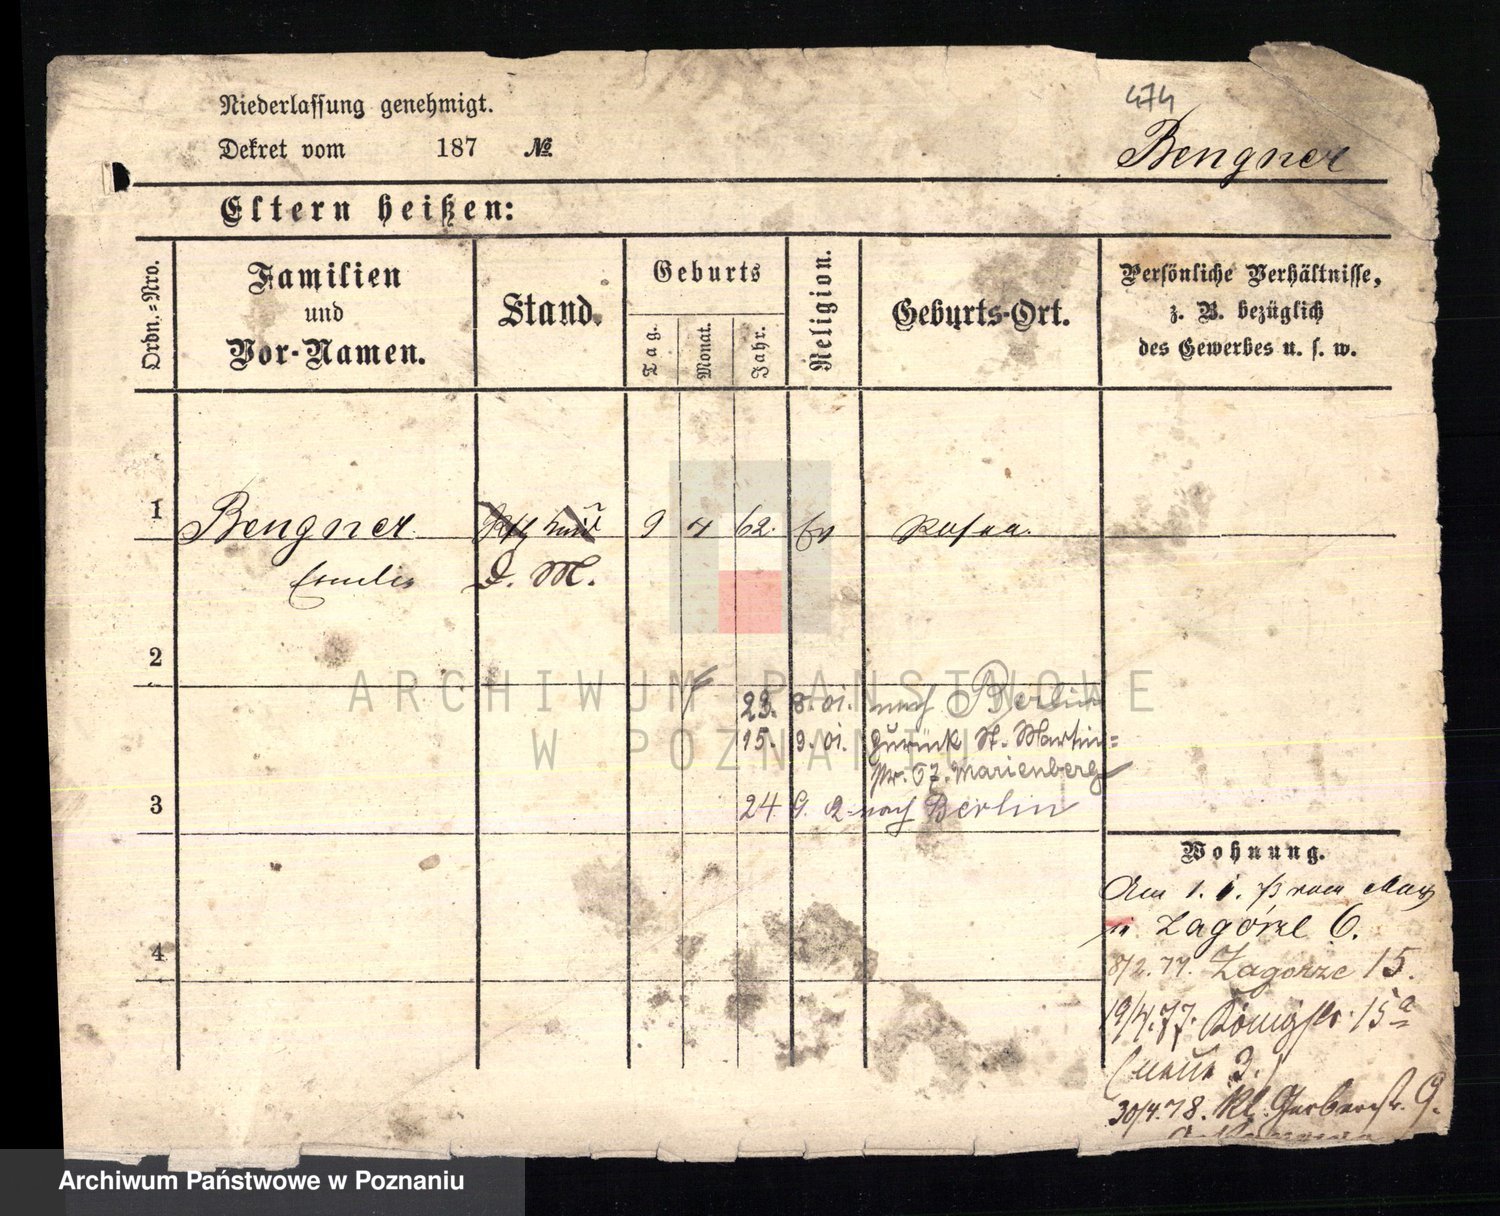 Niederlassung genehmigt.
474
Dekret vom 187 №
Bengner
Eltern heißen:
Ordn.=Nro.
Familien
und
Vor-Namen.
Stand.
Geburts
Tag.
Monat.
Jahr.
Religion.
Geburts-Ort.
Persönliche Verhältnisse,
z. B. bezüglich
des Gewerbes u. s. w.
1
Bengner 9 4 62. Ev Posen.
Emilie D. M.
2
23. 8. 01. nach Berlin
15. 9. 01. zurück St. Martin=
str. 67. Marienberg
3
24 9. 2 nach Berlin
Wohnung.
Am 1. 1. 73 vom
in Zagórze 6.
8/2. 77. Zagorze 15.
4
19/4. 77. Königstr. 15a
(neue 3.)
30/4. 78. Kl. Gerberstr. 9.
ARCHIWUM PAŃSTWOWE
W POZNANIU
Archiwum Państwowe w Poznaniu